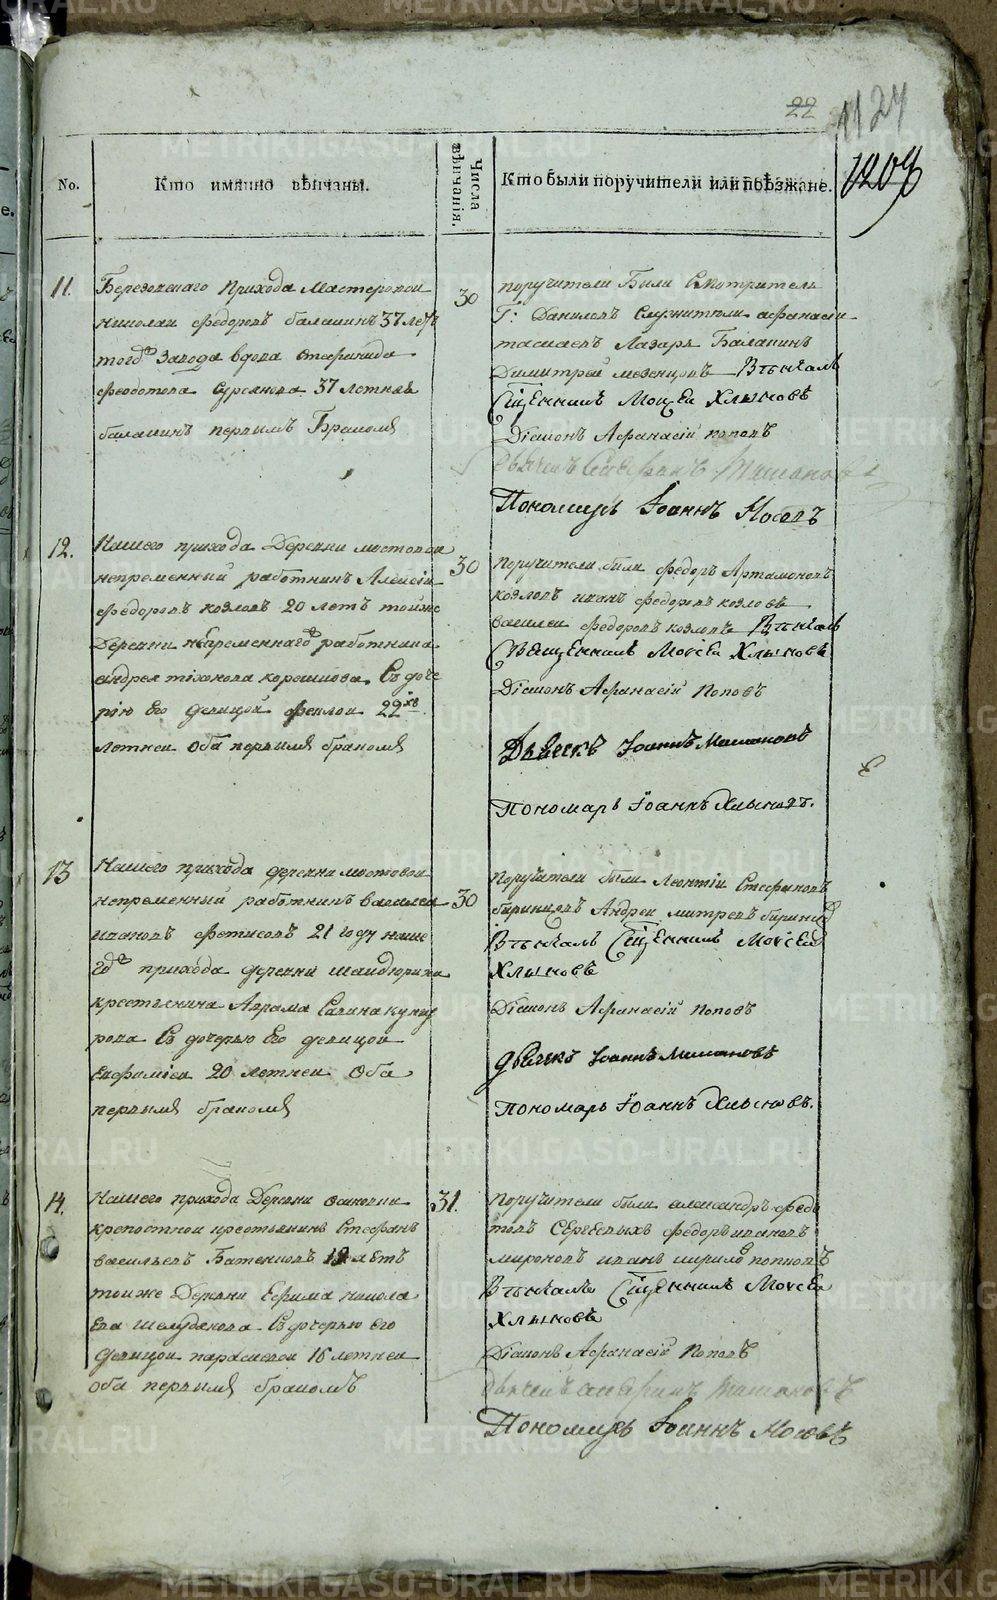 22
1124
1209
No.
Кто имянно вѣнчаны.
Числа вѣнчанія.
Кто были поручители или поѣзжане.
11.
прихода Мастеровои
Николаи Федоровъ балакинъ 37 летъ
того завода вдова
37 летняя
балакинъ первымъ бракомъ
30
поручители были Смотритель
Г: Даниловъ Служители афанасеи
Лазарь Балакинъ
Димитреи мезенцовъ Вѣнчалъ
Священникъ Моисеи Хлыновъ
Діаконъ Афанасій поповъ
Пономарь Іоаннъ Носовъ
12.
Нашего прихода Деревни мостовои
непременный работникъ Алексеи
Федоровъ козловъ 20 летъ тойже
Деревни непременнаго работника
андрея тихонова Съ доче
рію его девицой феклои 22хъ
летнеи оба первымъ бракомъ
30
поручители были Федоръ Артамоновъ
козловъ иванъ федоровъ козловъ
василеи федоровъ козловъ Вѣнчалъ
Священникъ Моисеи Хлыновъ
Діаконъ Афанасій Поповъ
Дьячекъ Іоаннъ
Пономарь Іоаннъ Хлыновъ.
13
Нашего прихода деревни мостовои
непременный работникъ василеи
ивановъ фетисовъ 21 году наше
го прихода деревни
крестьянина Аврама Савина
рова Съ дочерью его девицой
Евфиміеи 20 летнеи оба
первымъ бракомъ
30
Поручители были Леонтіи Стефановъ
Андреи митревъ
Вѣнчалъ Священникъ Моисеи
Хлыновъ
Діаконъ Афанасій Поповъ
дьячекъ Іоаннъ
Пономарь Іоаннъ Хлыновъ.
14.
Нашего прихода Деревни
крепостнои крестьянинъ Стефанъ
васильевъ 18 летъ
тоиже Деревни Ефима никола
ева Съ дочерью его
девицои параскевои 16 летнеи
оба первымъ бракомъ
31.
Поручители были александръ
федоръ ивановъ
мироновъ иванъ поповъ
Вѣнчалъ Священникъ Моисеи
Хлыновъ
Діаконъ Афанасій Поповъ
Пономарь Іоаннъ Носовъ
METRIKI.GASO-URAL.RU